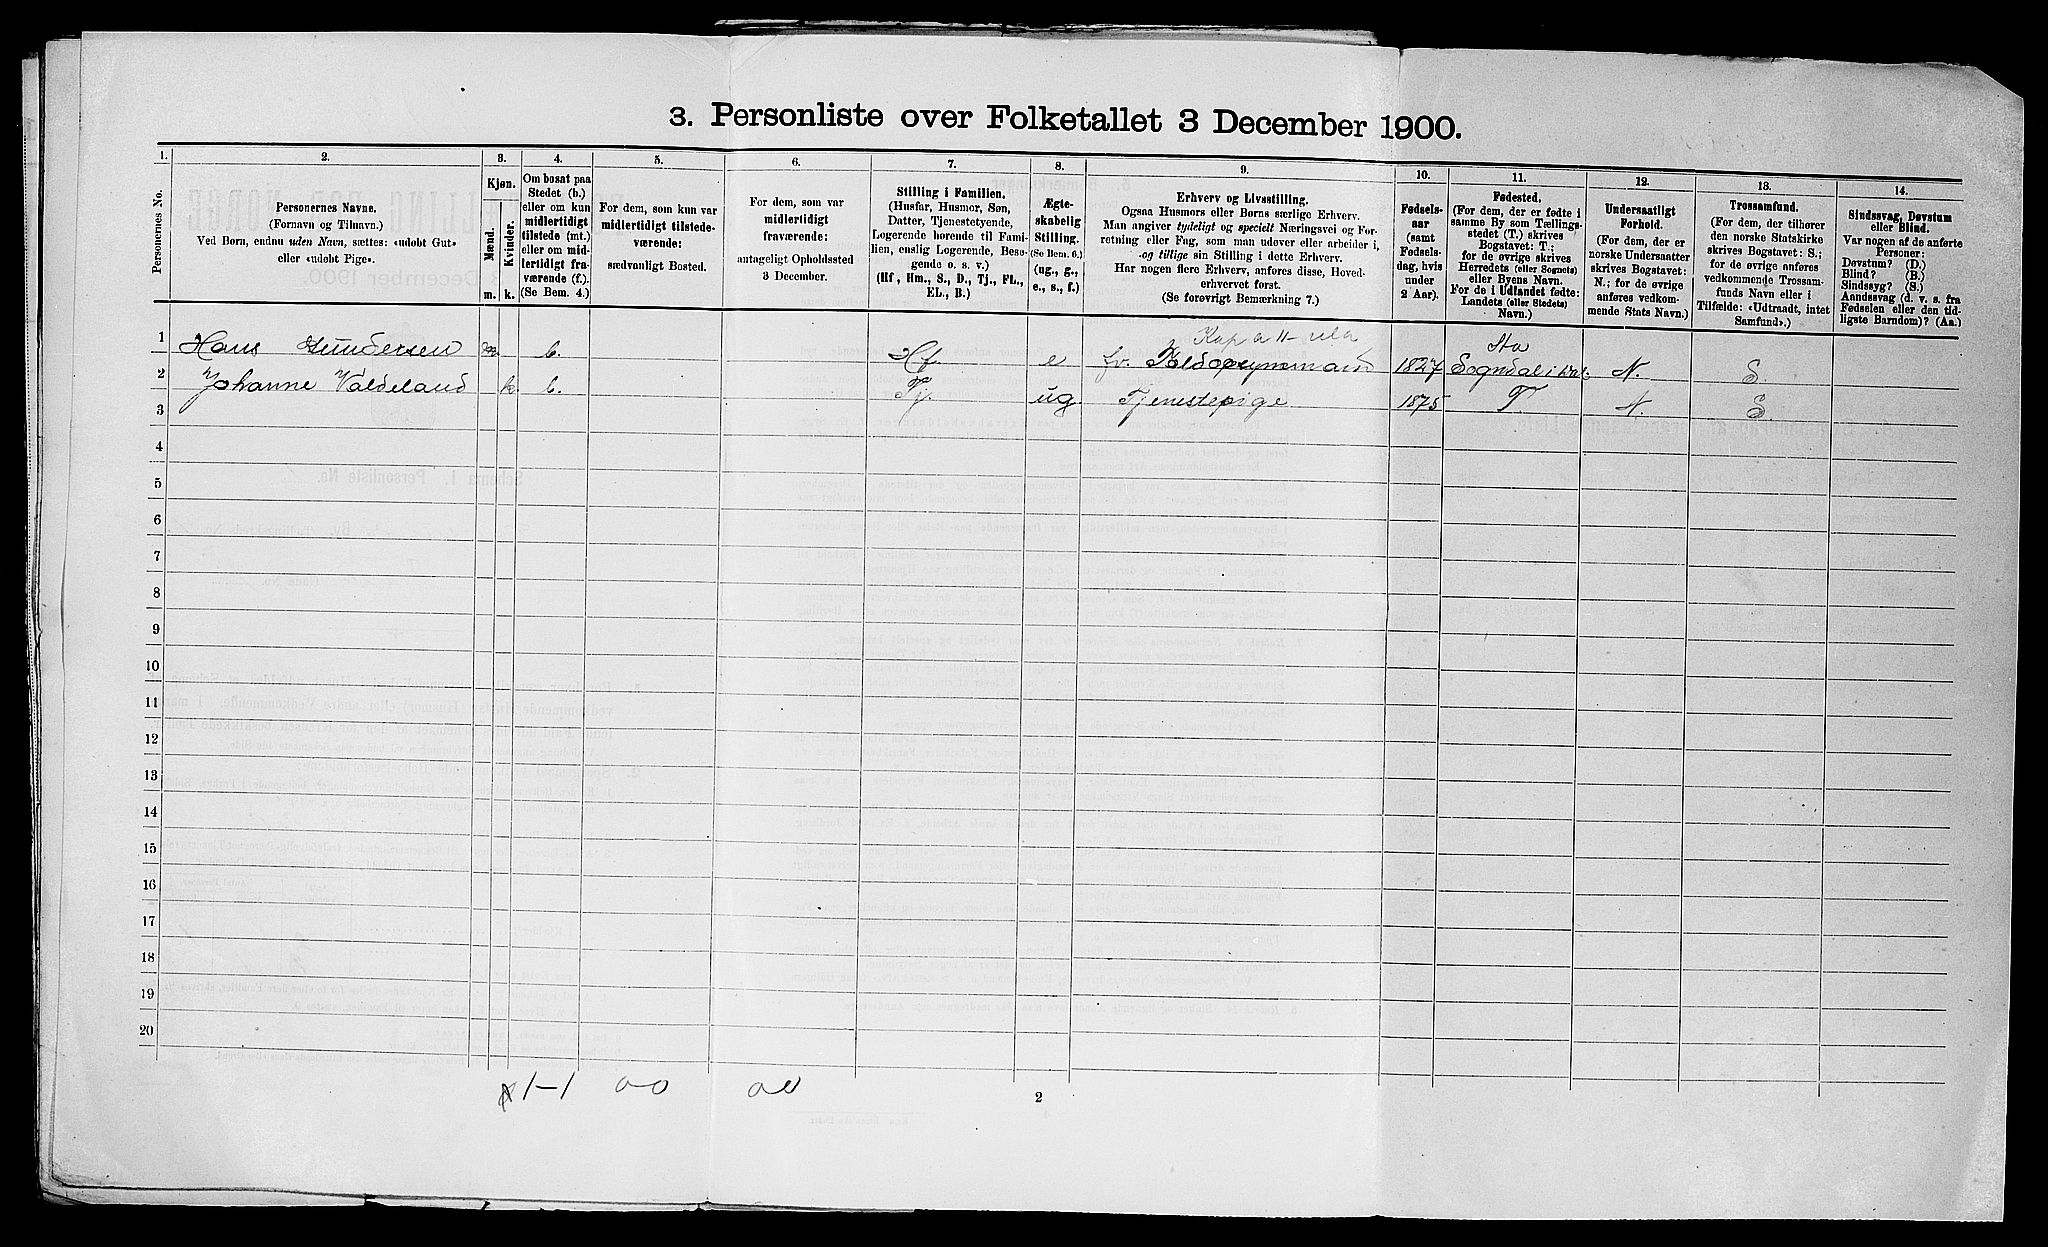 3. Personliste over Folketallet 3 December 1900.
1. 2. 3. 4. 5. 6. 7. 8. 9. 10. 11. 12. 13. 14.
Personernes No.
Personernes Navne.
(Fornavn og Tilnavn.)
Ved Børn, endnu uden Navn, sættes: «udøbt Gut»
eller «udøbt Pige».
Kjøn.
Mænd.
Kvinder.
m. k.
Om bosat paa
Stedet (b.)
eller om kun
midlertidigt
tilstede (mt.)
eller om mid-
lertidigt fra-
værende (f.).
(Se Bem. 4.)
For dem, som kun var
midlertidigt tilstede-
værende:
sædvanligt Bosted.
For dem, som var
midlertidigt
fraværende:
antageligt Opholdssted
3 December.
Stilling i Familien.
(Husfar, Husmor, Søn,
Datter, Tjenestetyende,
Logerende hørende til Fami-
lien, enslig Logerende, Besø-
gende o. s. v.)
(Hf, Hm., S., D., Tj., FL.,
EL., B.)
Ægte-
skabelig
Stilling.
(Se Bem. 6.)
(ug., g.,
e., s., f.)
Erhverv og Livsstilling.
Ogsaa Husmors eller Børns særlige Erhverv.
Man angiver tydeligt og specielt Næringsvei og For-
retning eller Fag, som man udøver eller arbeider i,
og tillige sin Stilling i dette Erhverv.
Har nogen flere Erhverv, anføres disse, Hoved-
erhvervet først.
(Se forøvrigt Bemærkning 7.)
Fødsels-
aar
(samt
Fødsels-
dag, hvis
under
2 Aar).
Fødested.
(For dem, der er fødte i
samme By som Tællings-
stedet (T.) skrives
Bogstavet: T.;
for de øvrige skrives
Herredets (eller Sognets)
eller Byens Navn.
For de i Udlandet fødte:
Landets (eller Stedets)
Navn.)
Undersaatligt
Forhold.
(For dem, der er
norske Undersaatter
skrives Bogstavet:
N.; for de øvrige
anføres vedkom-
mende Stats Navn.)
Trossamfund.
(For dem, der tilhører
den norske Statskirke
skrives Bogstavet: S.;
for de øvrige anføres
vedkommende Trossam-
funds Navn eller i
Tilfælde: «Udtraadt, intet
Samfund».)
Sindssvag, Døvstum
eller Blind.
Var nogen af de anførte
Personer:
Døvstum? (D.)
Blind? (B.)
Sindssyg? (S.)
Aandssvag (d. v. s. fra
Fødselen eller den tid-
ligste Barndom)? (Aa.)
1 Hans Gundersen m b. Hf. e fv. 1827 Sogndal i N. S.
2 Johanne Valdeland k b. Tj. ug Tjenestepige 1875 T. N. S.
3
4
5
6
7
8
9
10
11
12
13
14
15
16
17
18
19
20
1-1 00 00
2